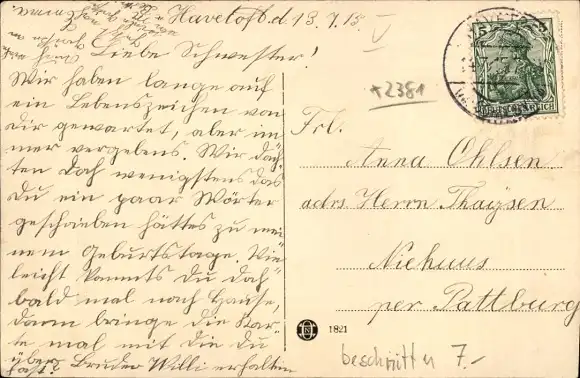 Havetoft d 13.7.15
Liebe Schwester!
Wir haben lange auf
ein Lebenszeichen von
dir gewartet, aber im
mer vergebens. Wir däch
ten doch wenigstens das
Du ein paar Wörter
geschrieben hättes zu mei
nem Geburtstage. Viel
leicht kommts du doch
bald mal nach Hause,
dann bringe die Kar
te mal mit die du
über Bruder Willi erhalten
hast?
V
*2381
Frl.
Anna Ohlsen
adrs Herrn Thaysen
Niehuus
per Pattburg
1821
beschnitten 7.-